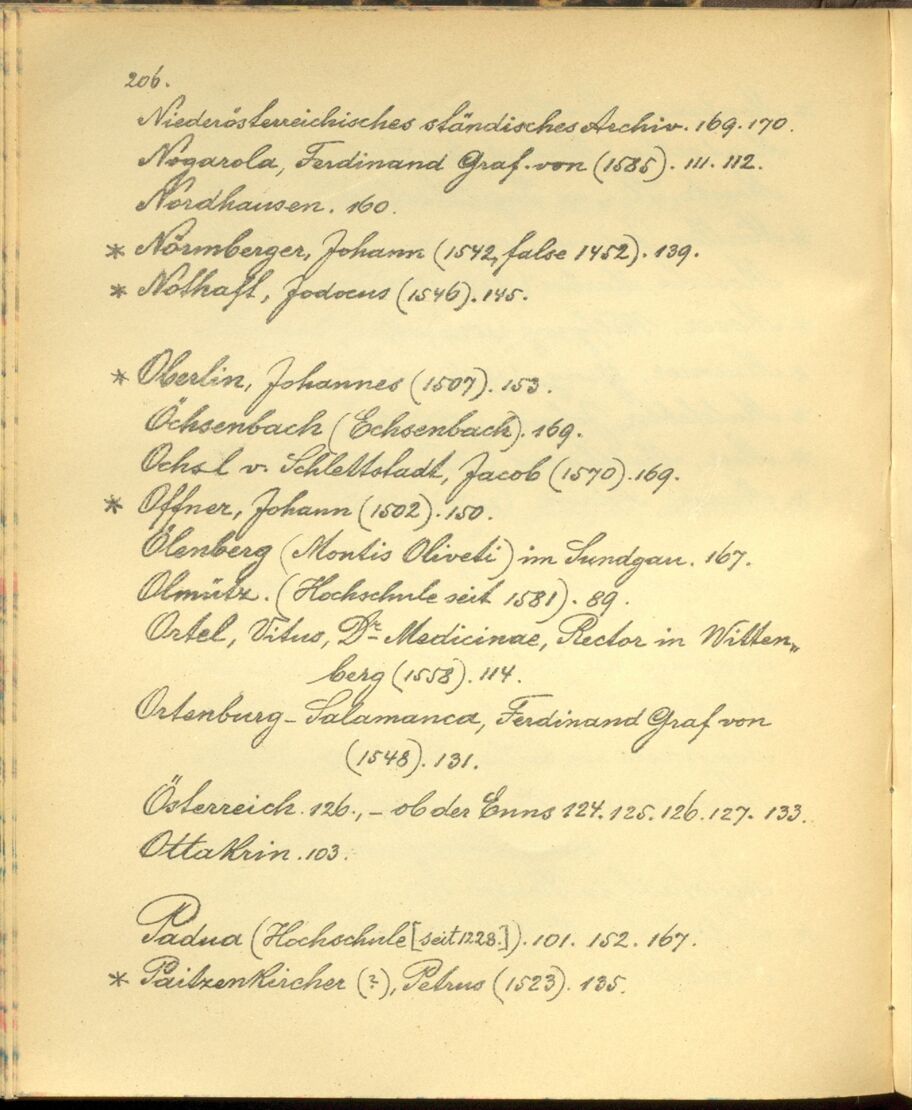 206.
Niederösterreichisches ständisches Archiv. 169. 170.
Nogarola, Ferdinand Graf von (1585). 111. 112.
Nordhausen. 160.
* Nörmberger, Johann (1542, false 1452). 139.
* Nothaft, Jodocus (1546). 145.
* Oberlin, Johannes (1507). 153.
Öchsenbach (Echsenbach). 169.
Ochsl v. Schlettstadt, Jacob (1570). 169.
* Offner, Johann (1502). 150.
Ölenberg (Montis Oliveti) im Sundgau. 167.
Olmütz. (Hochschule seit 1581). 89.
Ortel, Vitus, Dr. Medicinae, Rector in Witten„
berg (1558). 114.
Ortenburg-Salamanca, Ferdinand Graf von
(1548). 131.
Österreich. 126., – ob der Enns 124. 125. 126. 127. 133.
Ottakrin. 103.
Padua (Hochschule [seit 1228.]). 101. 152. 167.
* Paitzenkircher (?), Petrus (1523). 135.